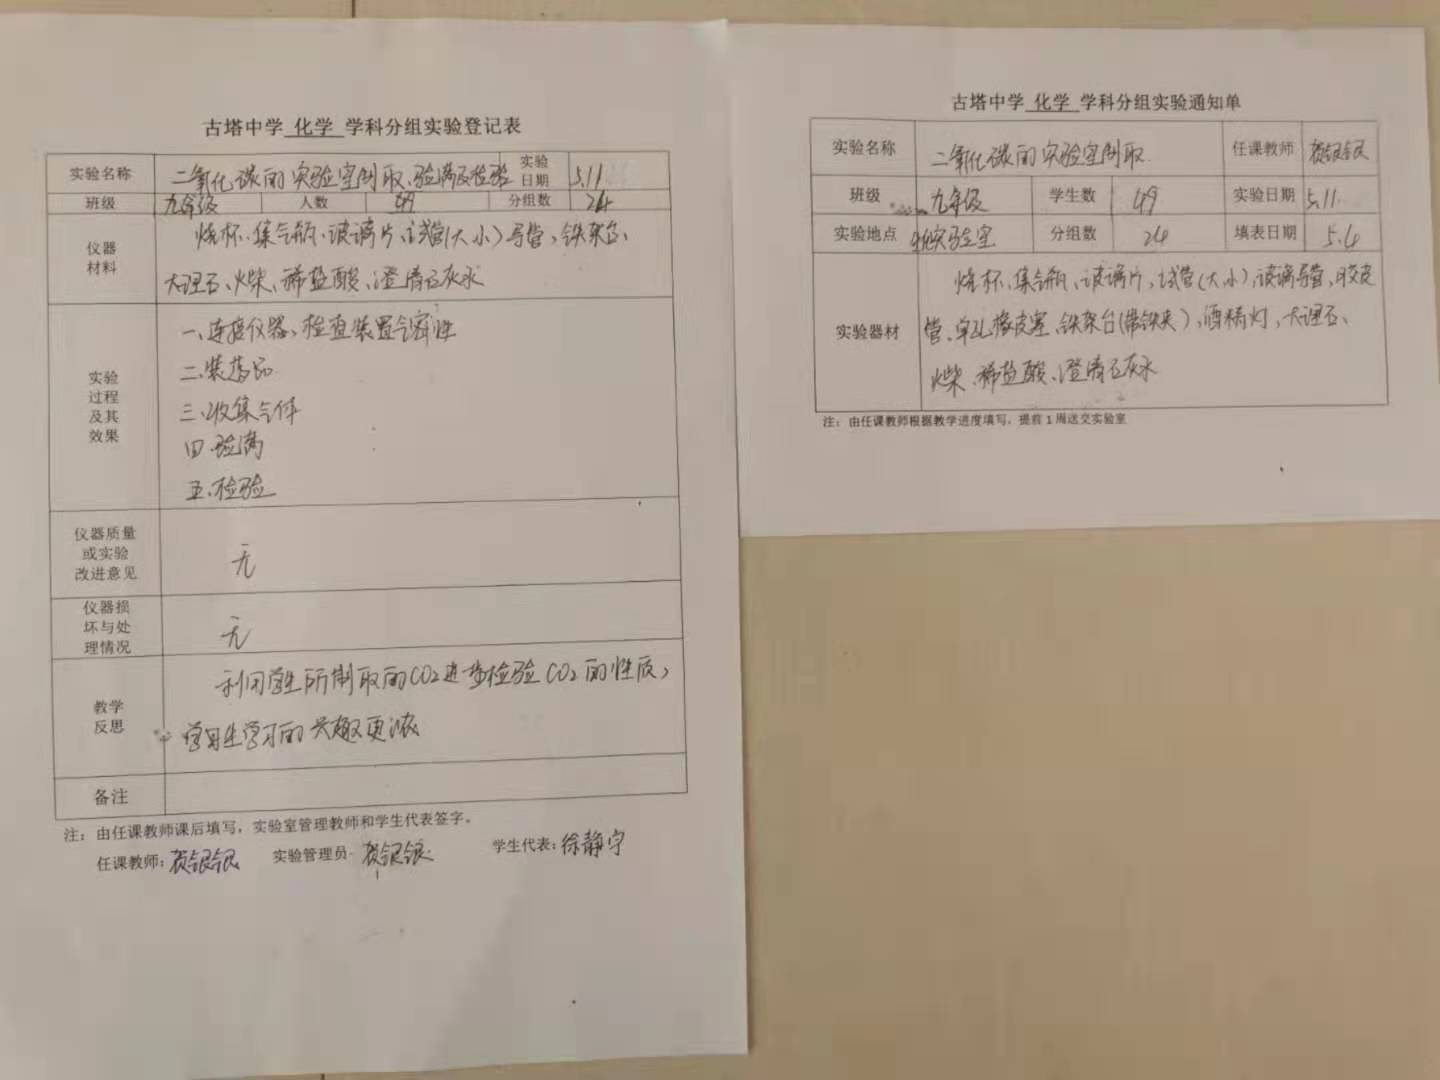 古塔中学 化学 学科分组实验登记表
实验名称 二氧化碳的实验室制取、验满及检验 实验日期 5.11
班级 九年级 人数 49 分组数 24
仪器材料 烧杯、集气瓶、玻璃片、试管(大小)导管、铁架台、
大理石、火柴、稀盐酸、澄清石灰水
实验过程及其效果 一、连接仪器、检查装置气密性
二、装药品
三、收集气体
四、验满
五、检验
仪器质量或实验改进意见 无
仪器损坏与处理情况 无
教学反思 利用学生所制取的CO2进步检验CO2的性质,
学生学习的兴趣更浓
备注
注:由任课教师课后填写,实验室管理教师和学生代表签字。
任课教师:贺银银 实验管理员 贺银银 学生代表:徐静宇
古塔中学 化学 学科分组实验通知单
实验名称 二氧化碳的实验室制取 任课教师 贺银银
班级 九年级 学生数 49 实验日期 5.11
实验地点 实验室 分组数 24 填表日期 5.4
实验器材 烧杯、集气瓶、玻璃片、试管(大小)、玻璃导管、胶皮
管、单孔橡皮塞、铁架台(带铁夹)、酒精灯、大理石、
火柴、稀盐酸、澄清石灰水
注:由任课教师根据教学进度填写,提前1周送交实验室